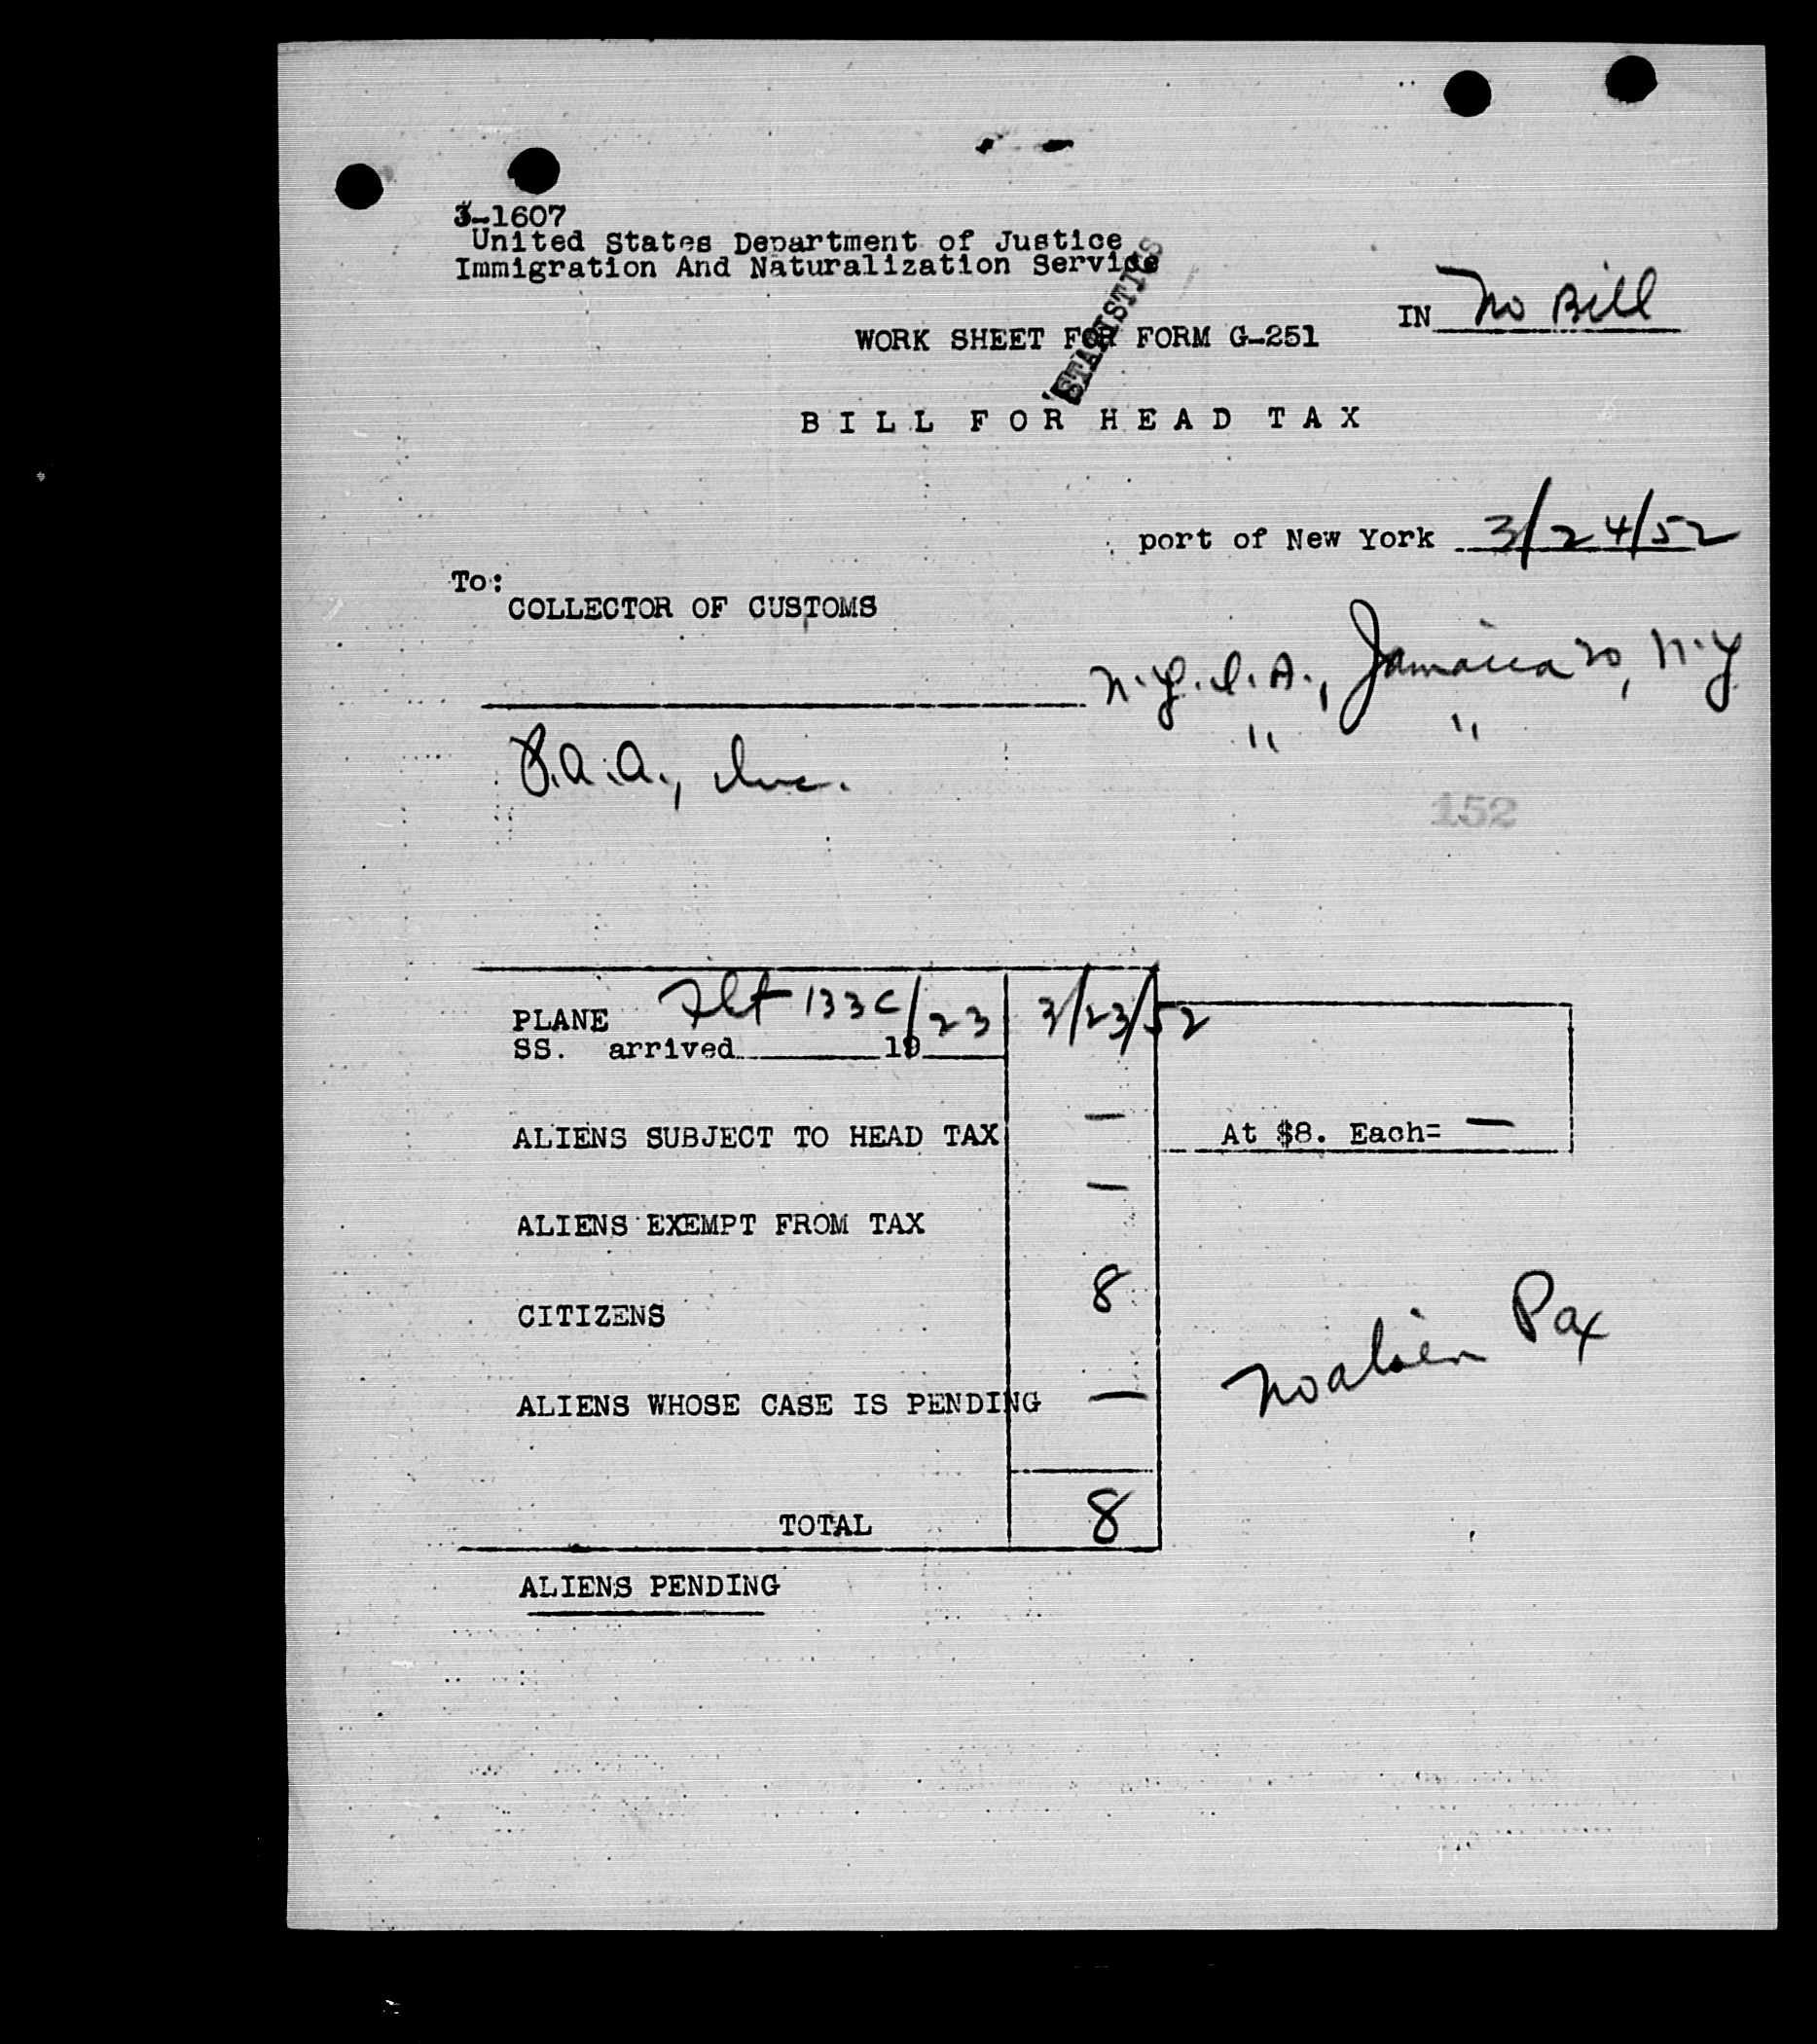 3-1607
United States Department of Justice
Immigration And Naturalization Service
STATISTICS
IN No Bill
WORK SHEET FOR FORM G-251
BILL FOR HEAD TAX
port of New York 3/24/52
To:
COLLECTOR OF CUSTOMS
N.Y.I.A., Jamaica 20, N.Y
" "
P.A.A., Inc.
152
PLANE Flt 133C/23 3/23/52
SS. arrived 19
ALIENS SUBJECT TO HEAD TAX — At $8. Each= —
ALIENS EXEMPT FROM TAX —
CITIZENS 8
No alien Pax
ALIENS WHOSE CASE IS PENDING —
TOTAL 8
ALIENS PENDING